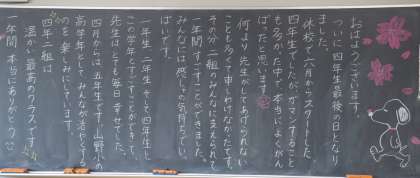 おはようございます。
ついに四年生最後の日となり
ました。
休校で六月からスタートした
四年生でしたが、ガマンすること
も多かった中で、本当によくがん
ばったと思います。
何より先生がしてあげられない
ことも多くて申しわけなかったです。
その分、二組のみんなに支えられて
一年間すごすことができました。
みんなには感しゃの気持ちでいっ
ぱいです。
一年生、二年生、そして四年生と
この学年とすごすことができて、
先生はとても毎日幸せでした。
四月からは五年生です。山野小の
高学年としてみんなが活やくする
のを楽しみにしています。
四年二組は
温かい最高のクラスです。
一年間、本当にありがとう